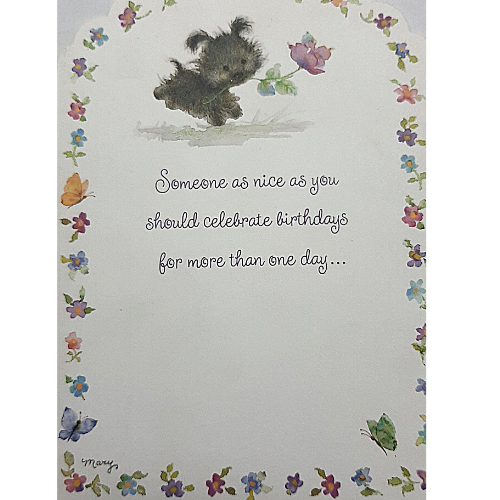 Someone as nice as you
should celebrate birthdays
for more than one day...
mary